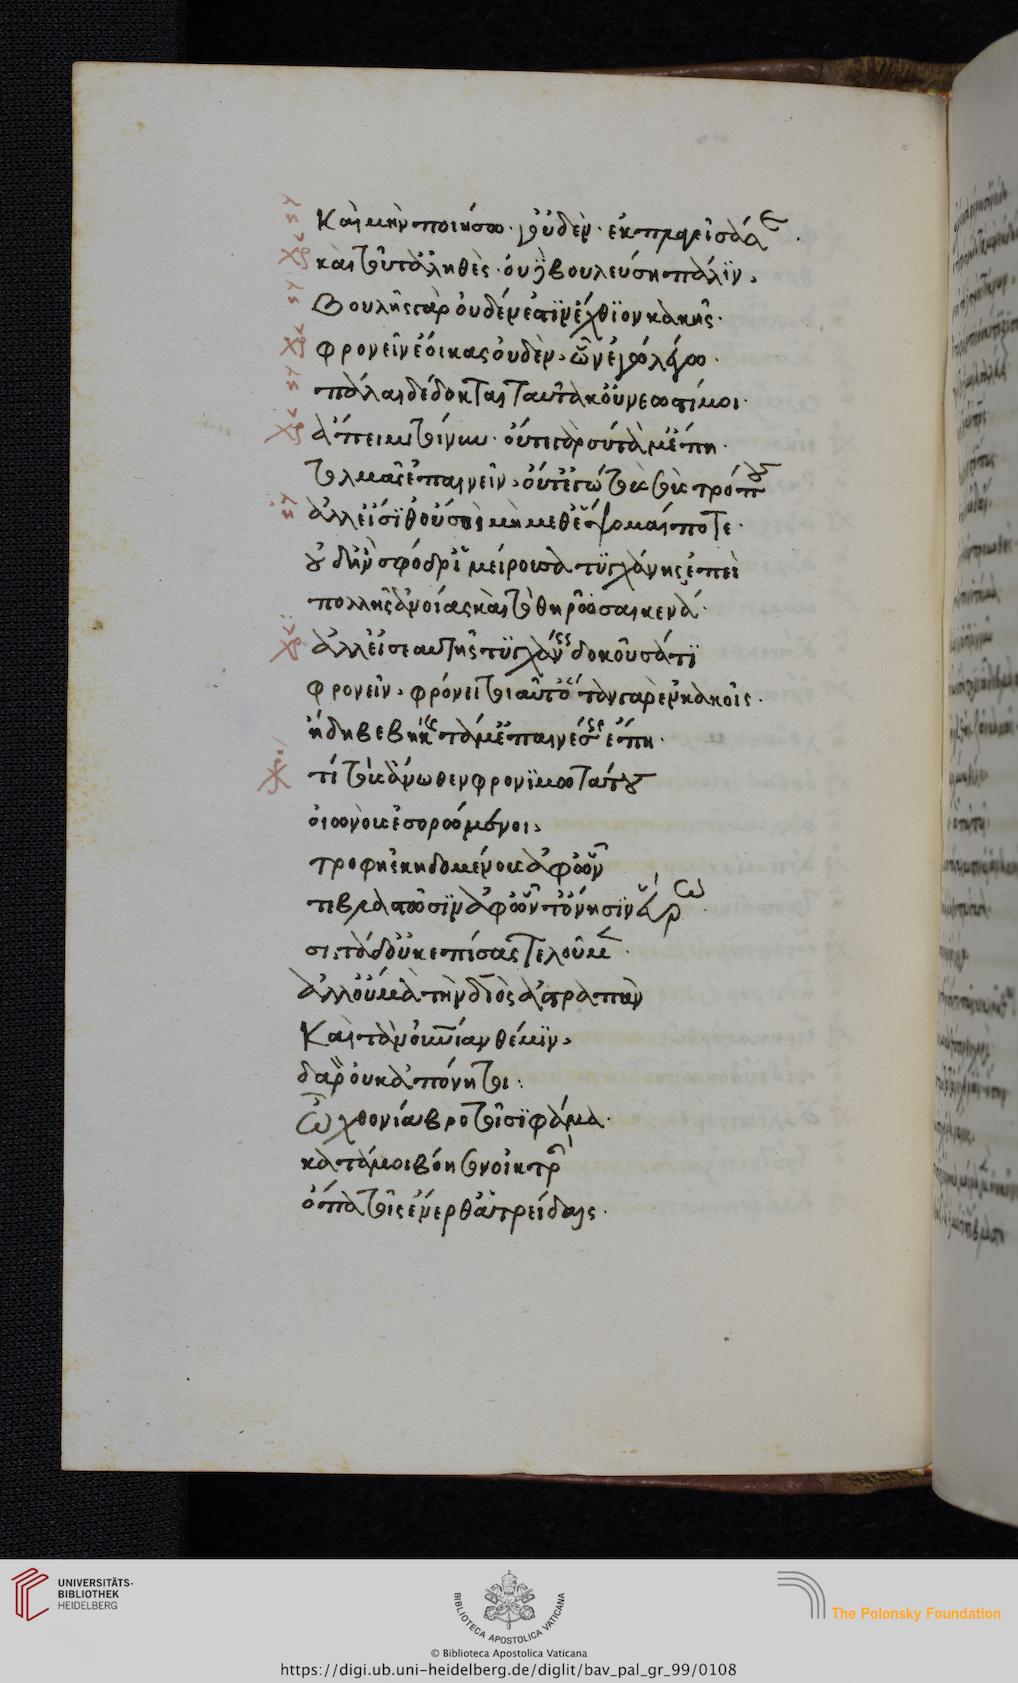 Καὶ μὴν ποιήσω γ' οὐδὲν ἐκπλαγεῖσά σε.
καὶ τοῦτ' ἀληθὲς· οὐδὲ βουλεύση πάλϊν,
Βουλῆς γὰρ οὐδέν ἐστϊν ἔχθϊον κακῆς.
φρονεῖν ἔοικας οὐδὲν, ὧν ἐγὼ λέγω.
πάλαι δέδοκται ταῦτα κοὐ νεωστί μοι.
ἄπειμι τοίνυν· οὔτε γὰρ σύ τἄμ' ἔπη.
τολμᾶς ἐπαινεῖν, οὔτ' ἐγώ τοὺς σοὺς τρόπους
ἀλλ' εἴσϊθ' οὔ σοι μὴ μεθέψομαί ποτε.
οὐδ' ἢν σφόδρ' ἱμείρουσα τϋγχάνης, ἐπεὶ
πολλῆς ἀνοίας καὶ τὸ θηρᾶσθαι κενά.
ἀλλ' εἰ σεαυτῆ τϋγχάνεις δοκοῦσά τϊ
φρονεῖν, φρόνει τοιαῦθ' ὅταν γὰρ ἐν κακοῖς.
ἤδη βεβήκης τἄμ' ἐπαινέσεις ἔπη.
τί τοὺς ἄνωθεν φρονϊμωτάτους
οἰωνοὺς ἐσορώμενοι,
τροφῆς κηδομένους ἀφ' ὧν
τε βλάστωσϊν ἀφ' ὧν τ' ὄνησϊν εὕρω
σι, τάδ' οὐκ ἐπ' ίσας τελοῦμεν.
ἀλλ' οὐ μὰ τὴν διὸς ἀστραπὴν
Καὶ τὰν οὐνίαν θέμϊν,
δαρὸν οὐκ ἀπόνητοι:
Ὦ χθονία βροτοῖσϊ φάμα.
κατά μοι βόησον οἰκτρὰν
ὄπα τοῖς ἔνερθ' ἀτρείδαις.
UNIVERSITÄTS-
BIBLIOTHEK
HEIDELBERG
BIBLIOTECA APOSTOLICA VATICANA
The Polonsky Foundation
© Biblioteca Apostolica Vaticana
https://digi.ub.uni-heidelberg.de/diglit/bav_pal_gr_99/0108